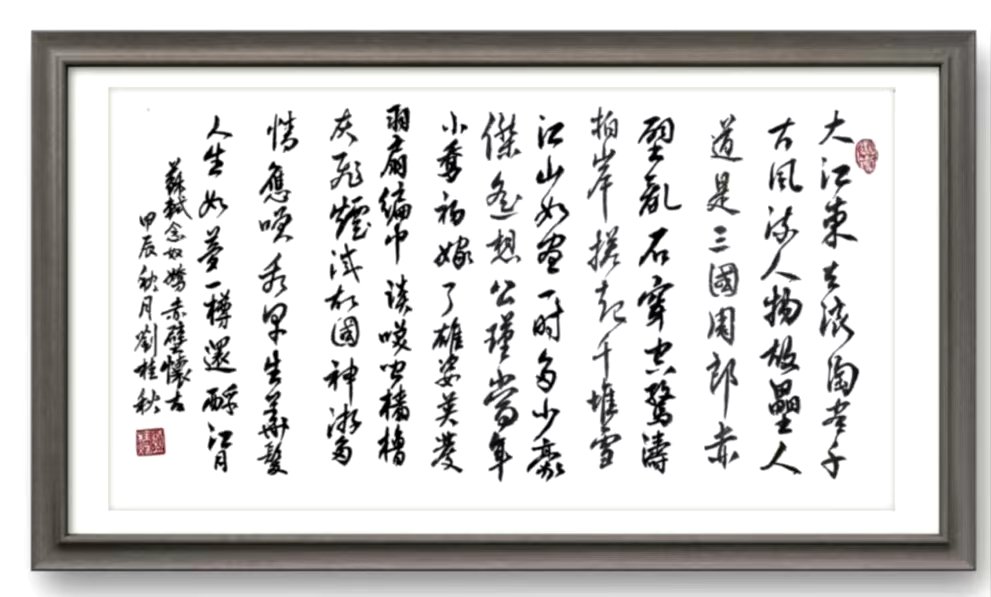 大江東去浪淘尽千
古風流人物故壘人
道是三國周郎赤
壁亂石穿空驚濤
拍岸捲起千堆雪
江山如畫一時多少豪
傑遙想公瑾當年
小喬初嫁了雄姿英發
羽扇綸巾談笑間檣櫓
灰飛煙滅故國神游多
情應笑我早生華髮
人生如夢一樽還酹江月
蘇軾念奴嬌赤壁懷古
甲辰秋月劉桂秋